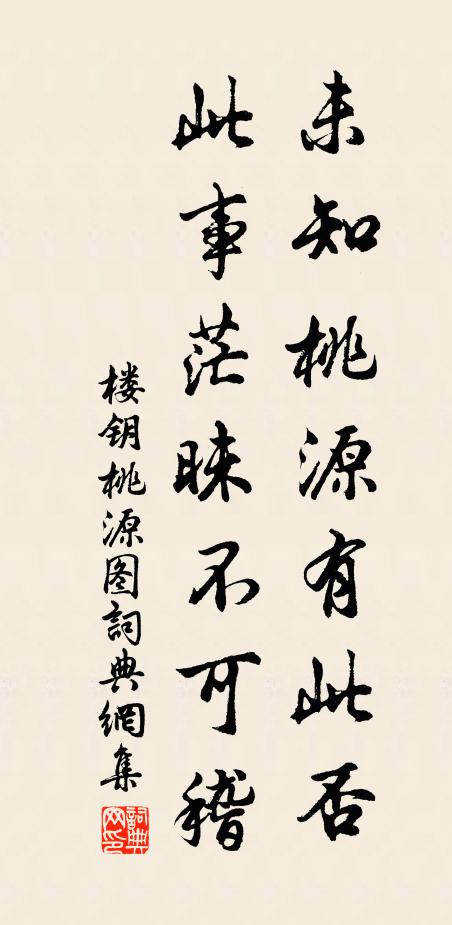 未知桃源有此否
此事茫昧不可稽
楼钥桃源图詞典網集
詞典网印